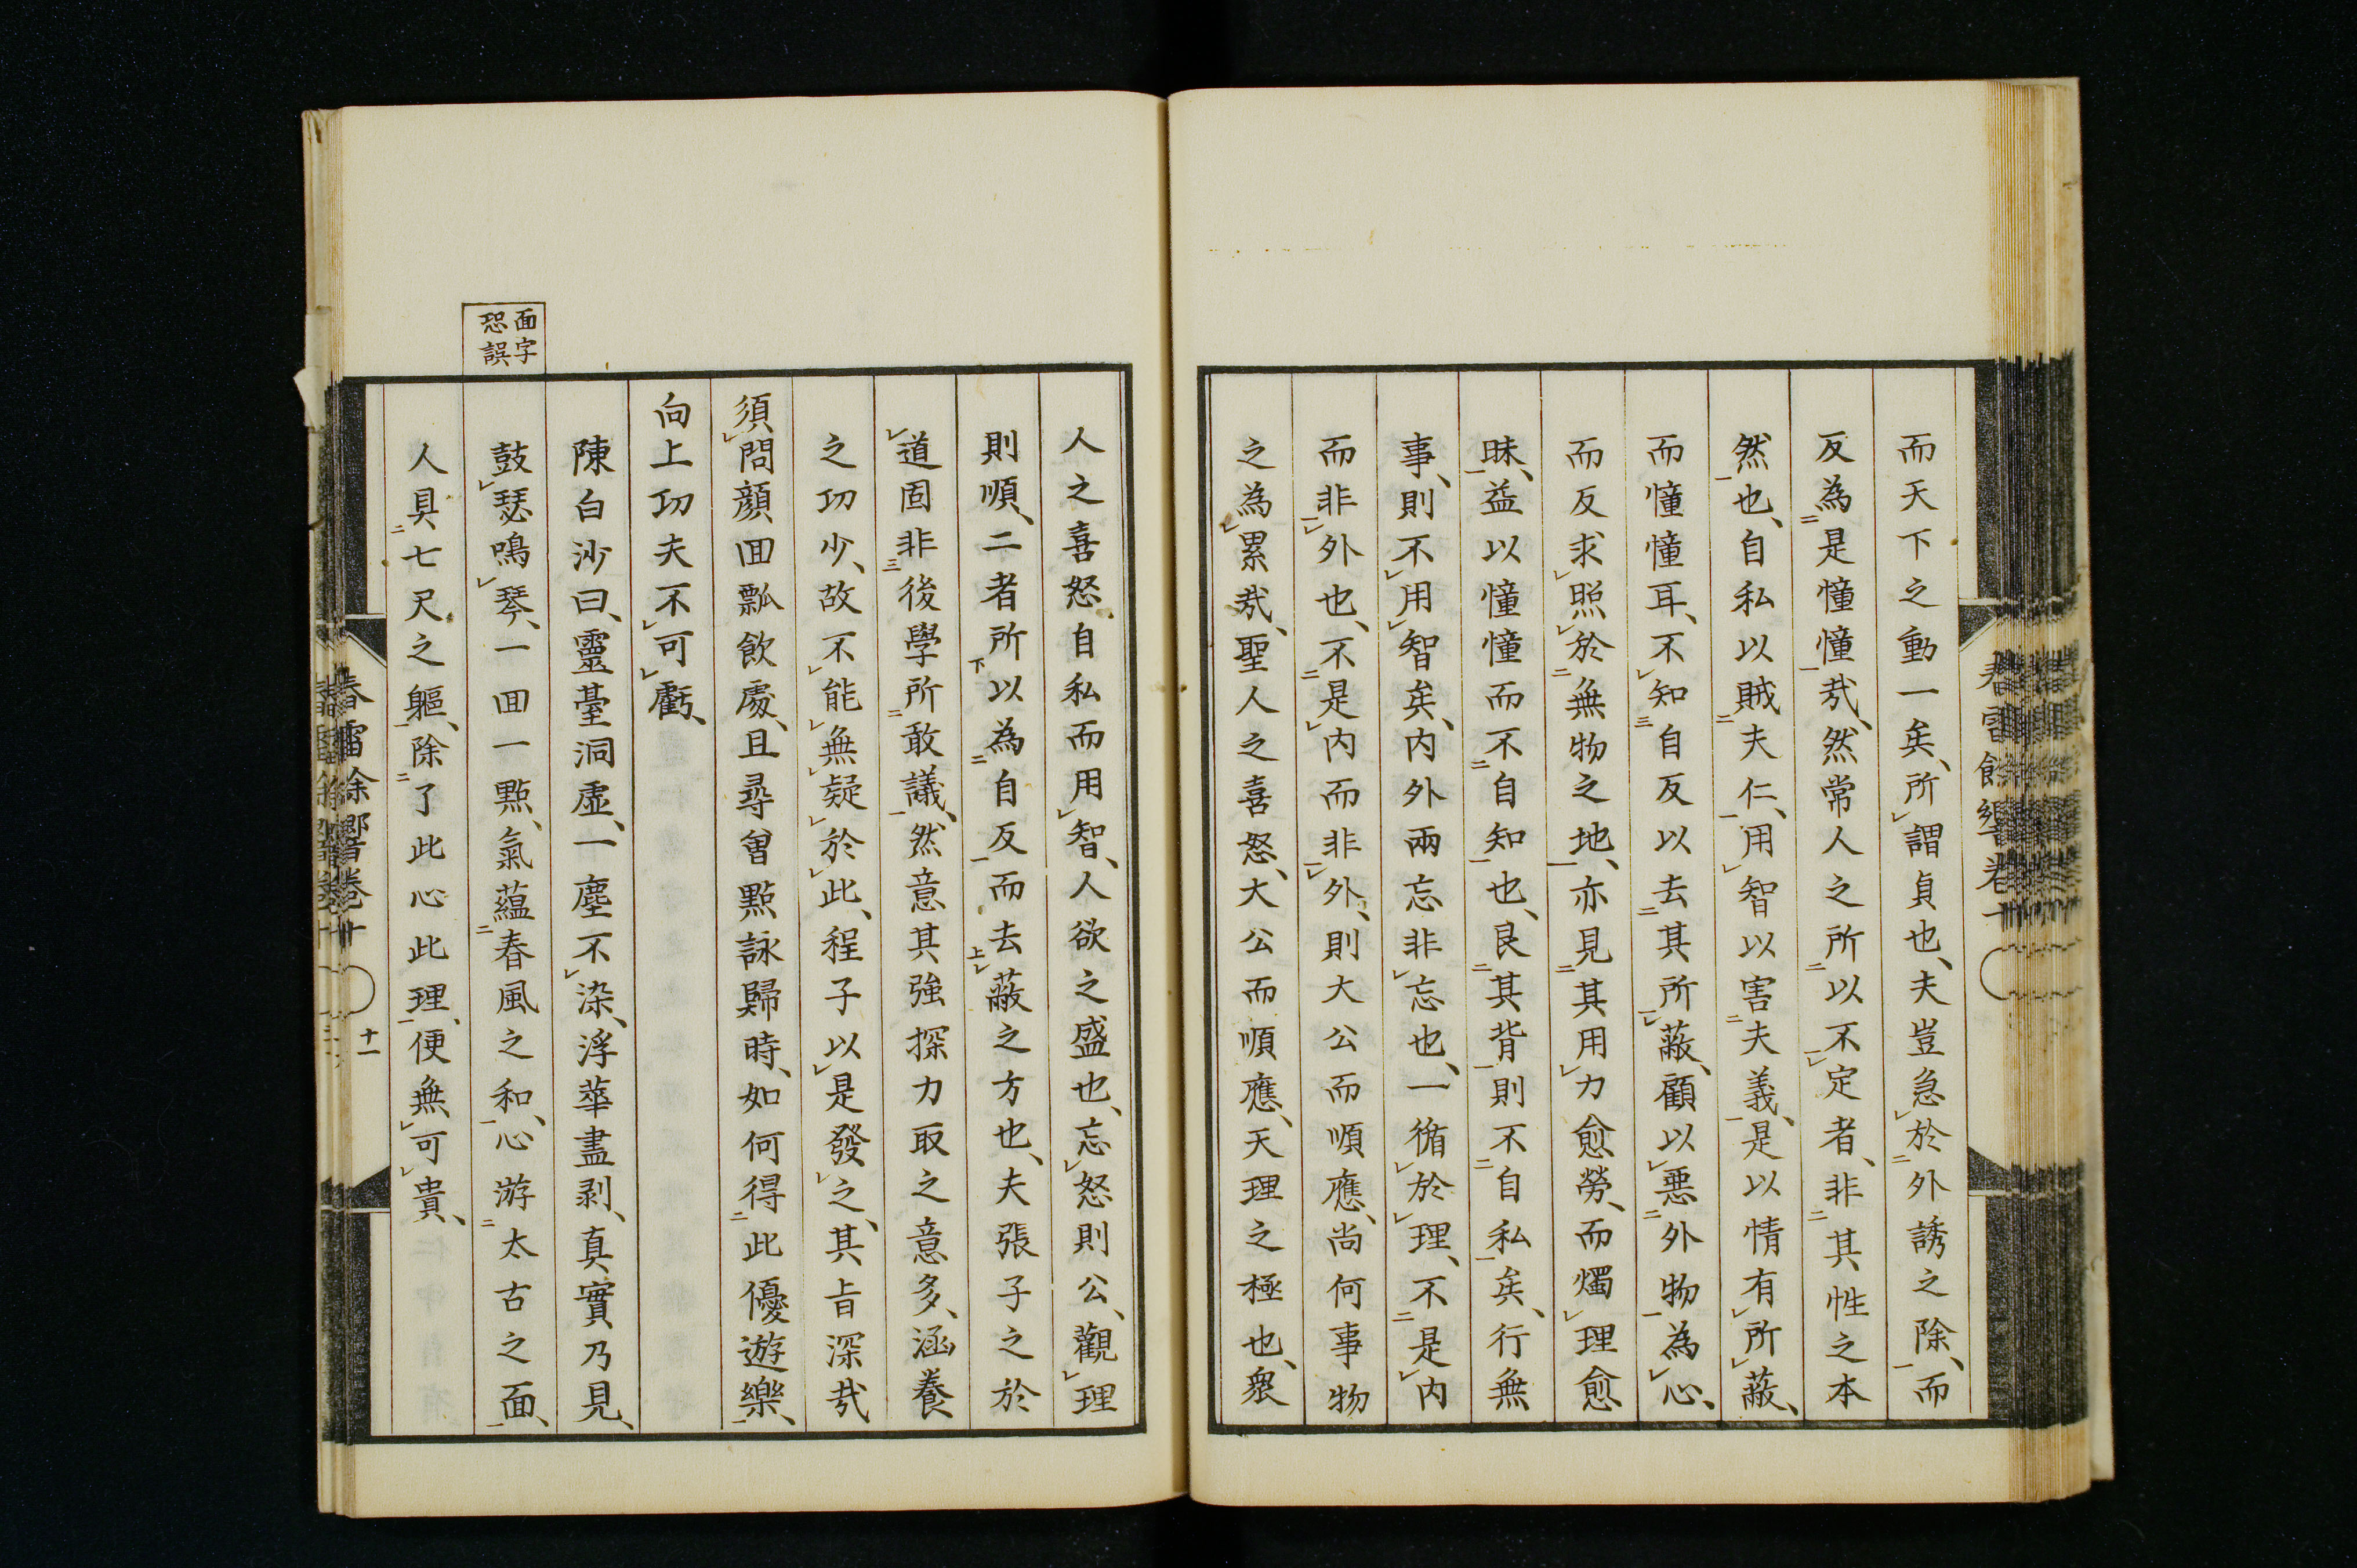 而天下之動一矣、所謂貞也、夫豈急於外誘之除、而
反為是憧憧哉、然常人之所以不定者、非其性之本
然也、自私以賊夫仁、用智以害夫義、是以情有所蔽、
而憧憧耳、不知自反以去其所蔽、顧以惡外物為心、
而反求照於無物之地、亦見其用力愈勞、而燭理愈
昧、益以憧憧而不自知也、艮其背則不自私矣、行無
事、則不用智矣、内外兩忘非忘也、一循於理、不是内
而非外也、不是内而非外、則大公而順應、尚何事物
之為累哉、聖人之喜怒、大公而順應、天理之極也、衆
人之喜怒、自私而用智、人欲之盛也、忘怒則公、觀理
則順、二者所以為自反而去蔽之方也、夫張子之於
道固非後學所敢議、然意其強探力取之意多、涵養
之功少、故不能無疑於此、程子以是發之、其旨深哉
須問顔回瓢飲處、且尋曾點詠歸時、如何得此優遊樂、
向上功夫不可虧、
陳白沙曰、靈臺洞虛、一塵不染、浮華盡剥、真實乃見、
面字
恐誤
鼓瑟鳴琴、一回一點、氣蘊春風之和、心游太古之面、
人具七尺之軀、除了此心此理、便無可貴、
春雷餘響卷十
十一